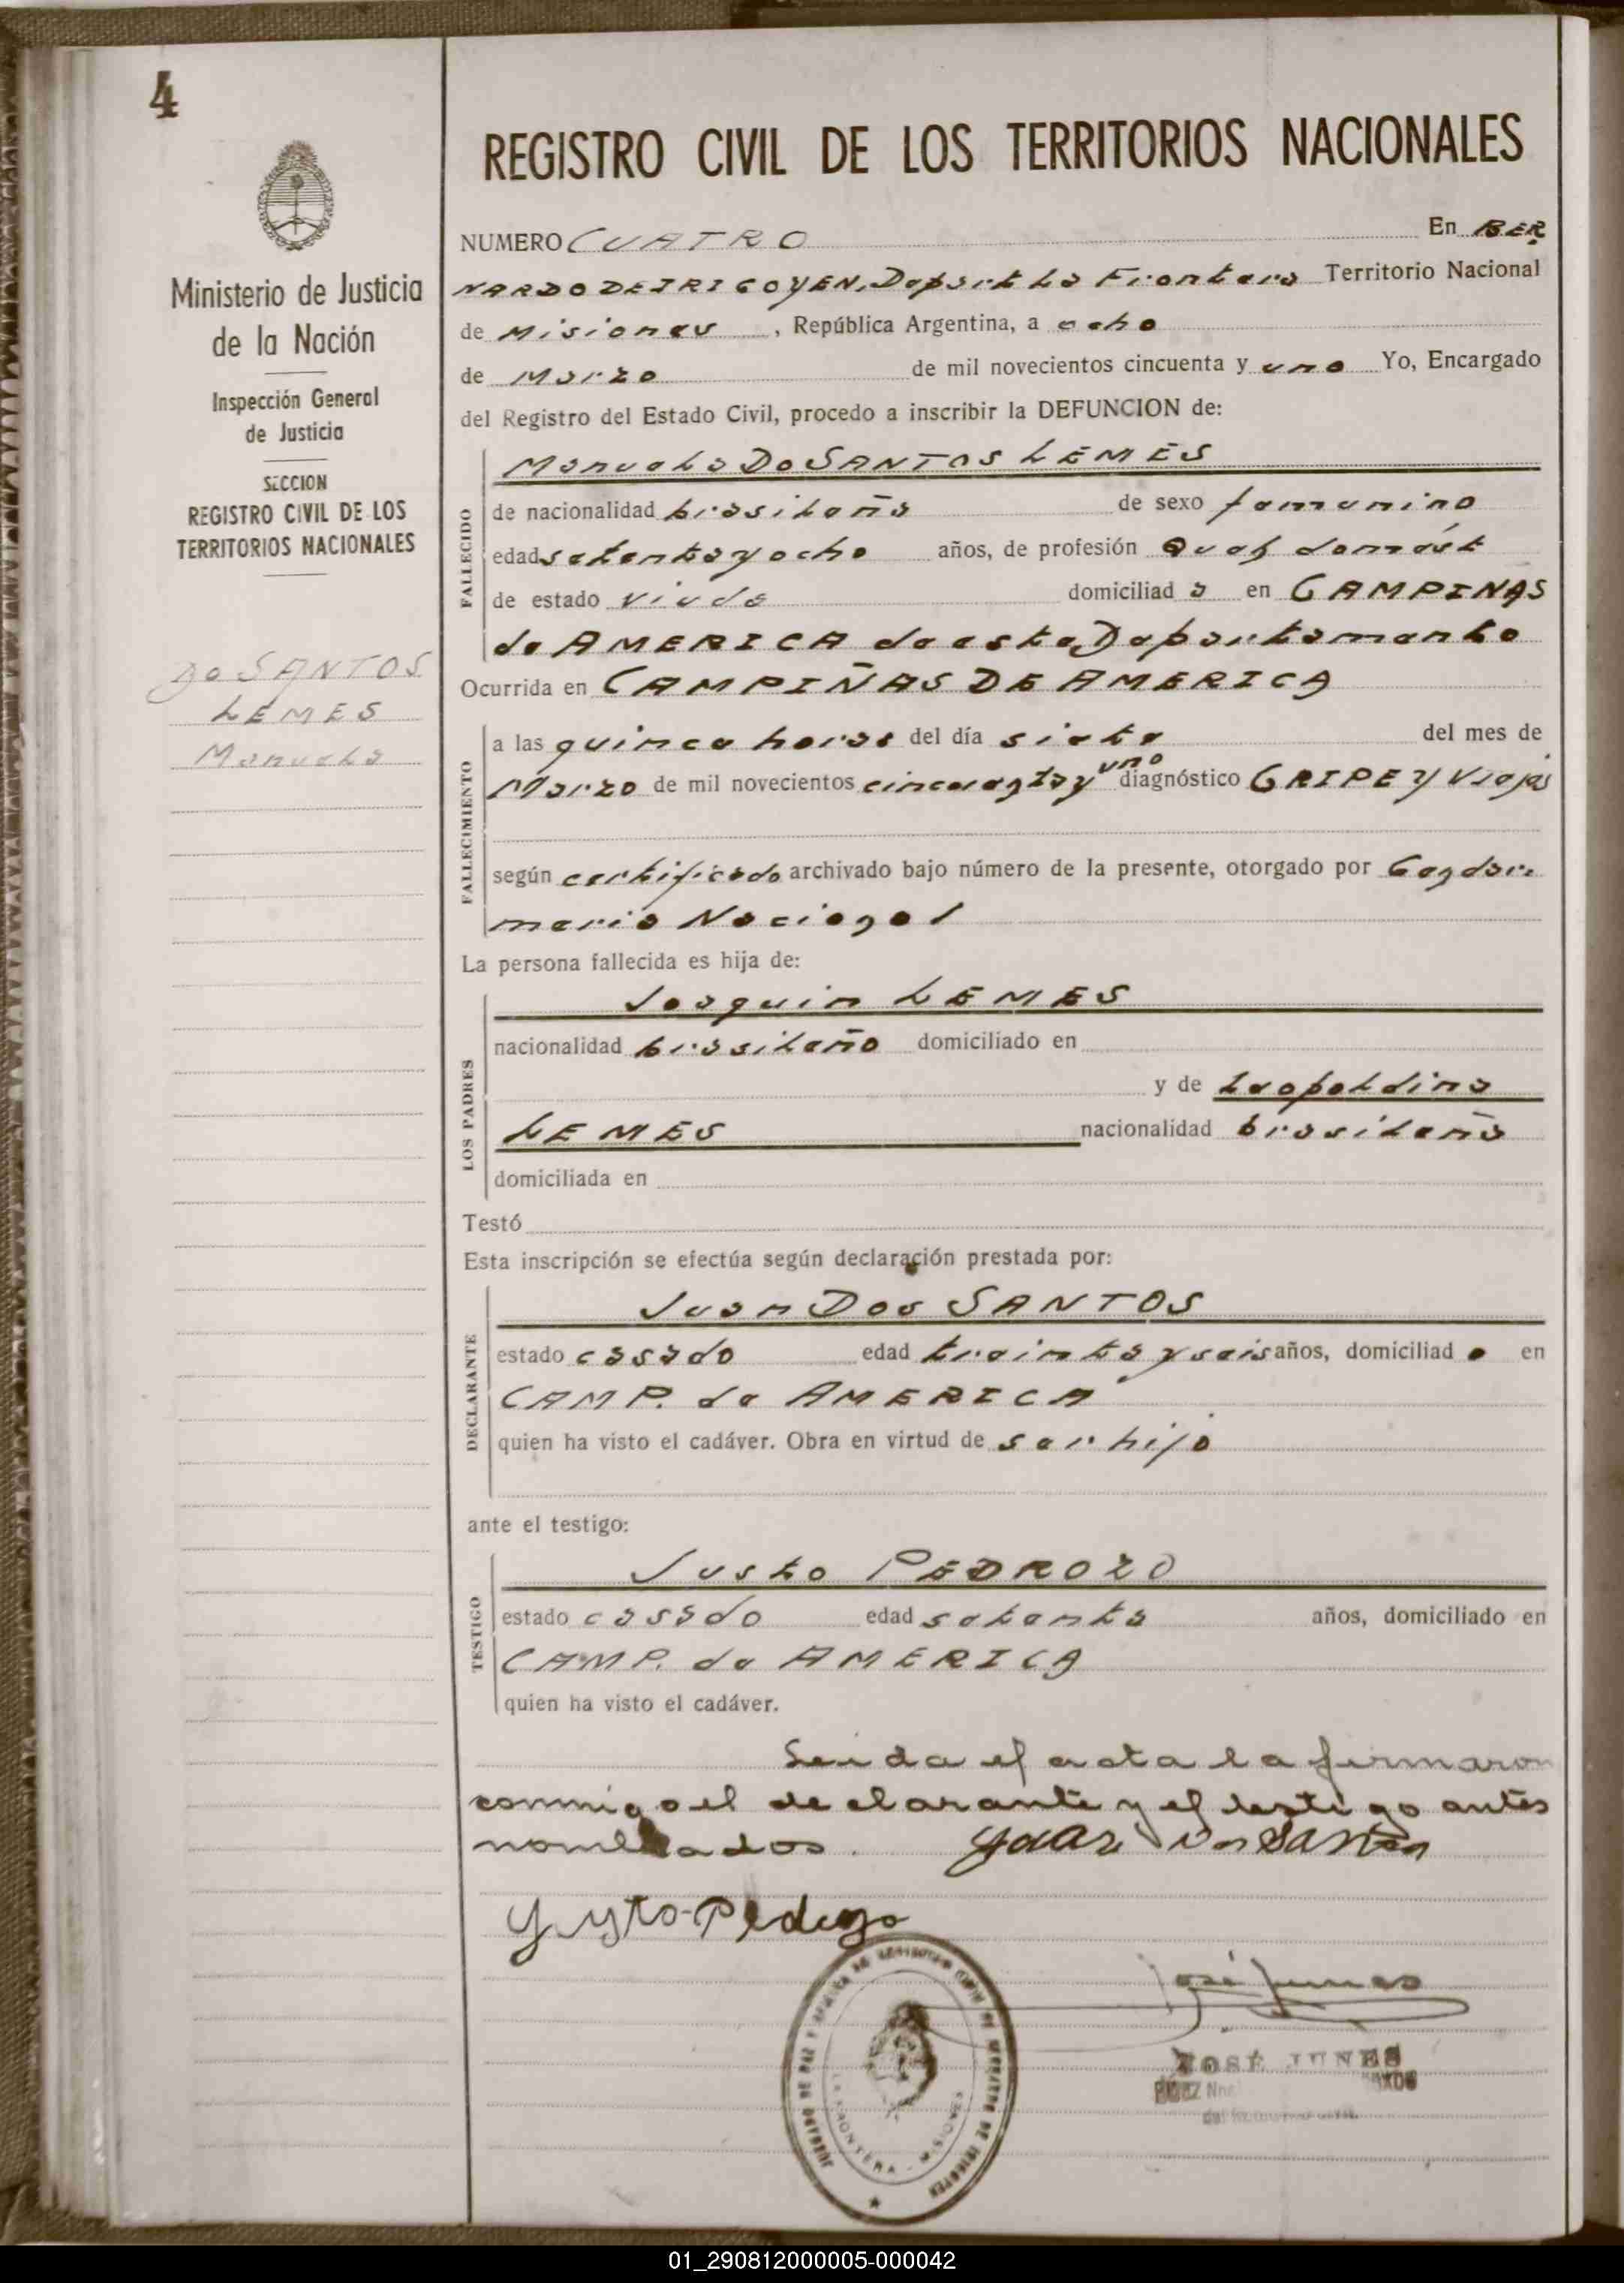 4
Ministerio de Justicia
de la Nación
Inspección General
de Justicia
SECCION
REGISTRO CIVIL DE LOS
TERRITORIOS NACIONALES
Do SANTOS
LEMES
Manuela
REGISTRO CIVIL DE LOS TERRITORIOS NACIONALES
NUMERO CUATRO En BER
NARDO DE IRIGOYEN, Depart La Frontera Territorio Nacional
de Misiones, República Argentina, a ocho
de Marzo de mil novecientos cincuenta y uno Yo, Encargado
del Registro del Estado Civil, procedo a inscribir la DEFUNCION de:
Manuela Do SANTOS LEMES
FALLECIDO
de nacionalidad brasileña de sexo femenino
edad setenta y ocho años, de profesión Queh domést
de estado viuda domiciliad a en CAMPINAS
de AMERICA de este Departamento
Ocurrida en CAMPIÑAS DE AMERICA
FALLECIMIENTO
a las quince horas del día siete del mes de
Marzo de mil novecientos cincuenta y uno diagnóstico GRIPE y Vejés
según certificado archivado bajo número de la presente, otorgado por Gendar
meria Nacional
La persona fallecida es hija de:
LOS PADRES
Joaquin LEMES
nacionalidad brasileño domiciliado en
y de Leopoldina
LEMES nacionalidad brasileña
domiciliada en
Testó
Esta inscripción se efectúa según declaración prestada por:
DECLARANTE
Juan Dos SANTOS
estado casado edad treinta y seis años, domiciliad o en
CAMP. de AMERICA
quien ha visto el cadáver. Obra en virtud de ser hijo
ante el testigo:
TESTIGO
Justo PEDROZO
estado casado edad setenta años, domiciliado en
CAMP. de AMERICA
quien ha visto el cadáver.
Leida el acta la firmaron
conmigo el declarante y el testigo antes
nombrados.
José Junes
JOSÉ JUNES
LA FRONTERA - MISIONES
01_290812000005-000042